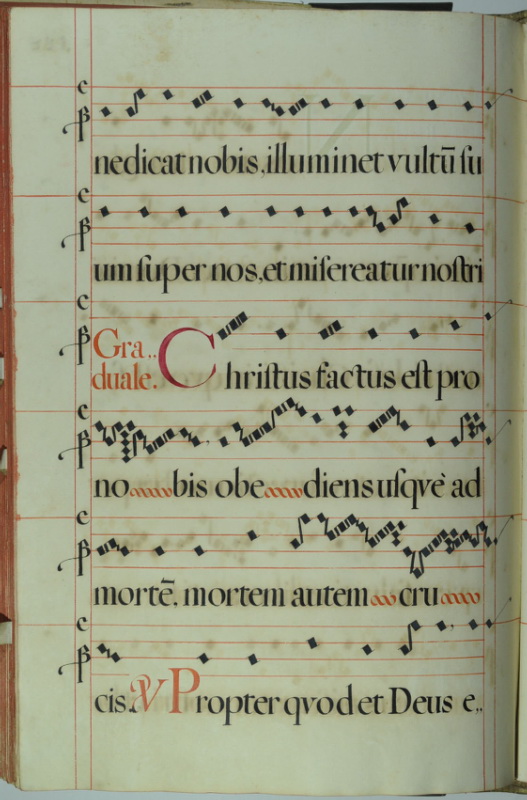 nedicat nobis, illuminet vultū ſu
um ſuper nos, et miſereatur noſtri
Gra..
duale. Chriſtus factus eſt pro
no bis obe diens uſqvè ad
mortē, mortem autem cru
cis. V Propter qvod et Deus e,,